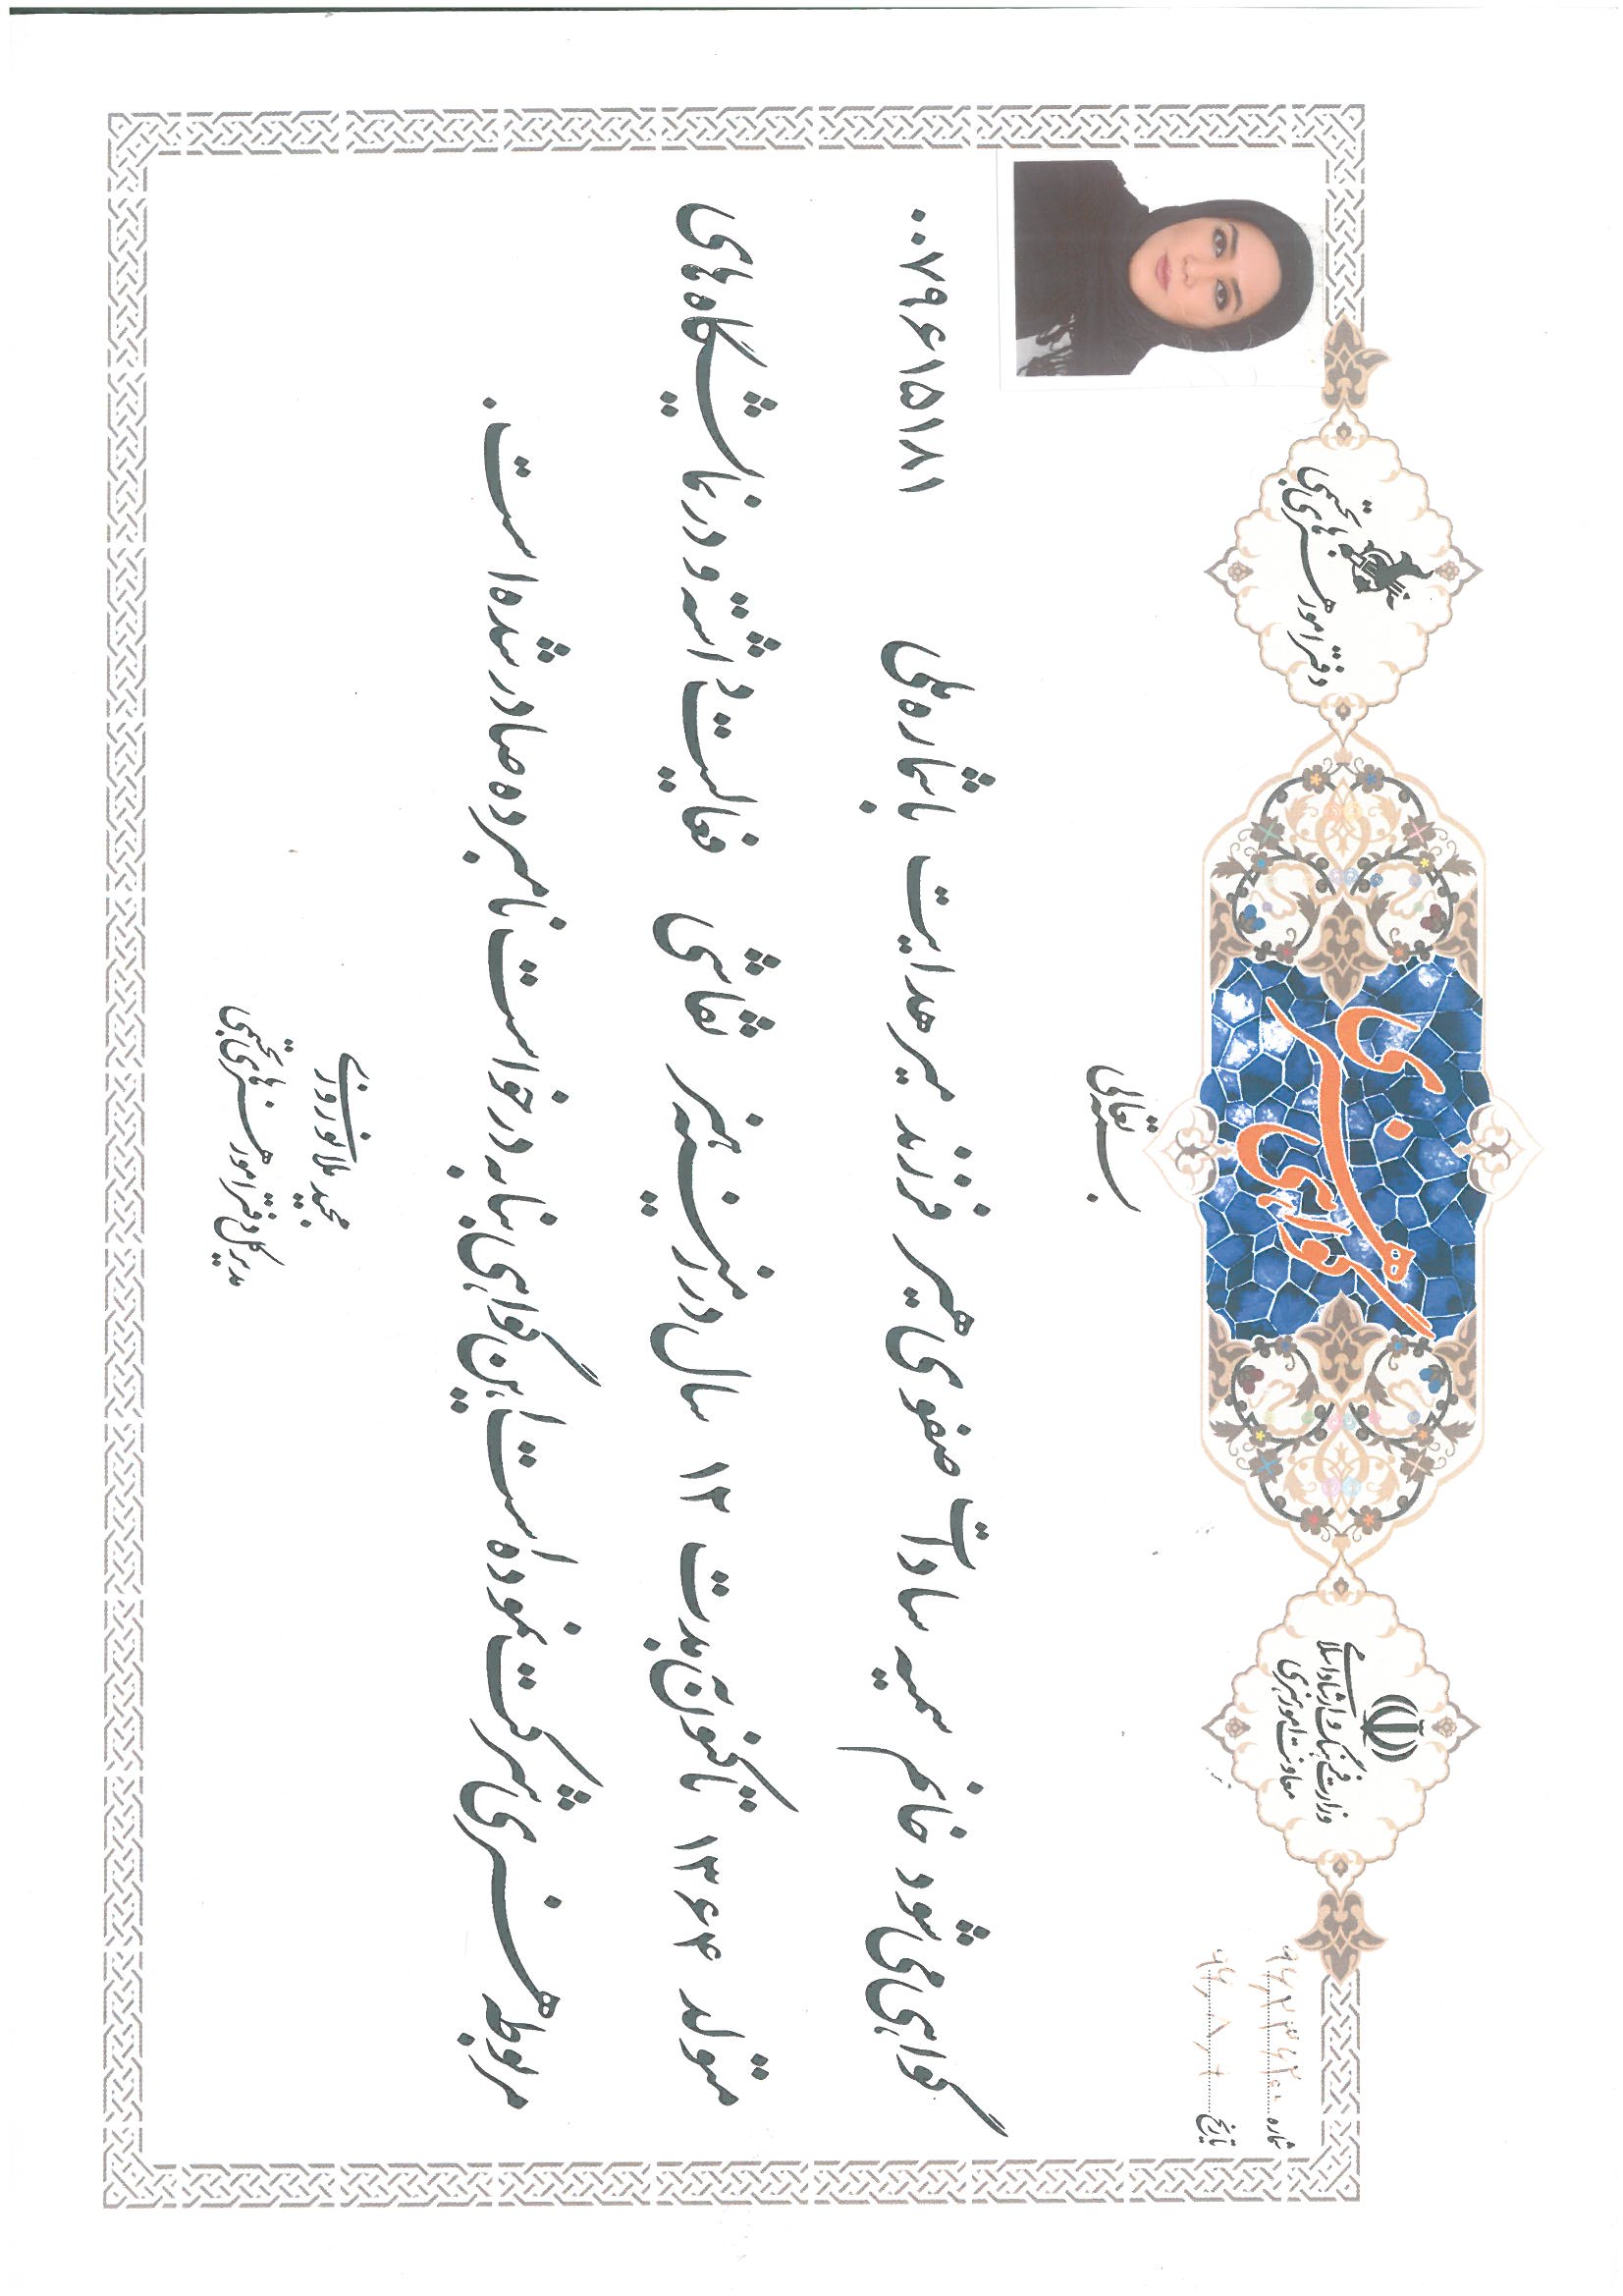 وزارت فرهنگ و ارشاد اسلامی
معاونت امور هنری
گواهی هنری
دفتر امور هنرهای تجسمی
شماره
تاریخ
بسمه تعالی
گواهی می شود خانم سمیه سادات صفوی همیر فرزند میرهدایت با شماره ملی ۰۰۷۹۶۱۵۱۸۱
متولد ۱۳۶۴ تاکنون بمدت ۱۲ سال در زمینه هنر نقاشی فعالیت داشته و در نمایشگاه های
مربوطه هنری شرکت نموده است این گواهی بنا به درخواست نامبرده صادر شده است.
مجید ملانوروزی
مدیر کل دفتر امور هنرهای تجسمی